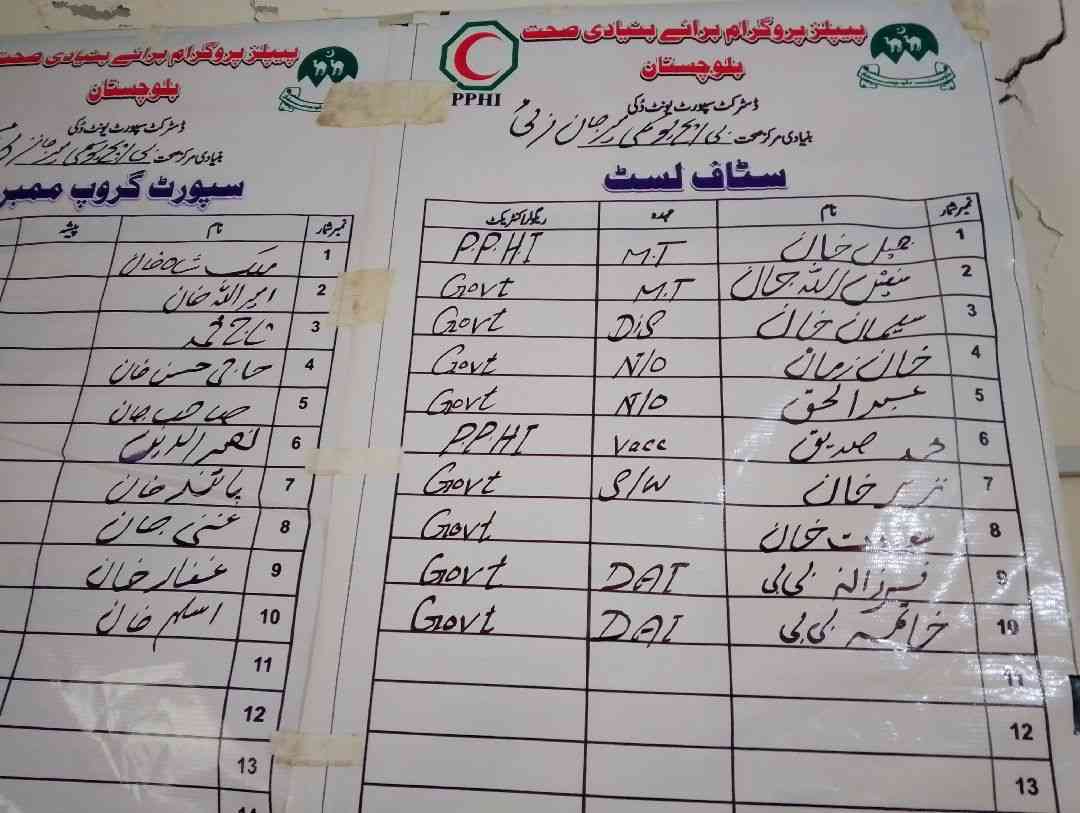 پیپلز پروگرام برائے بنیادی صحت
بلوچستان
PPHI
ڈسٹرکٹ سپورٹ یونٹ دُکی
بنیادی مرکز صحت بی ایچ یو
سٹاف لسٹ
نمبر شمار نام عہدہ ریگولر/کنٹریکٹ
1 خان M.T P.P.H.I
2 اللہ M.T Govt
3 سلیمان خان DiS Govt
4 خان زمان N/O Govt
5 عبدالحق N/O Govt
6 محمد صدیق Vacc P.P.H.I
7 خان S/W Govt
8 خان Govt
9 فرزانہ بی بی DAI Govt
10 بی بی DAI Govt
11
12
13
پیپلز پروگرام برائے بنیادی صحت
بلوچستان
ڈسٹرکٹ سپورٹ یونٹ دُکی
بنیادی مرکز صحت بی ایچ یو
سپورٹ گروپ ممبر
نمبر شمار نام پیشہ
1 ملک شاہ خان
2 امیر اللہ خان
3 تاج محمد
4 حاجی حسن خان
5 صاحب جان
6 نصیر الدین
7 خان
8 غنی جان
9 غفار خان
10 اسلم خان
11
12
13